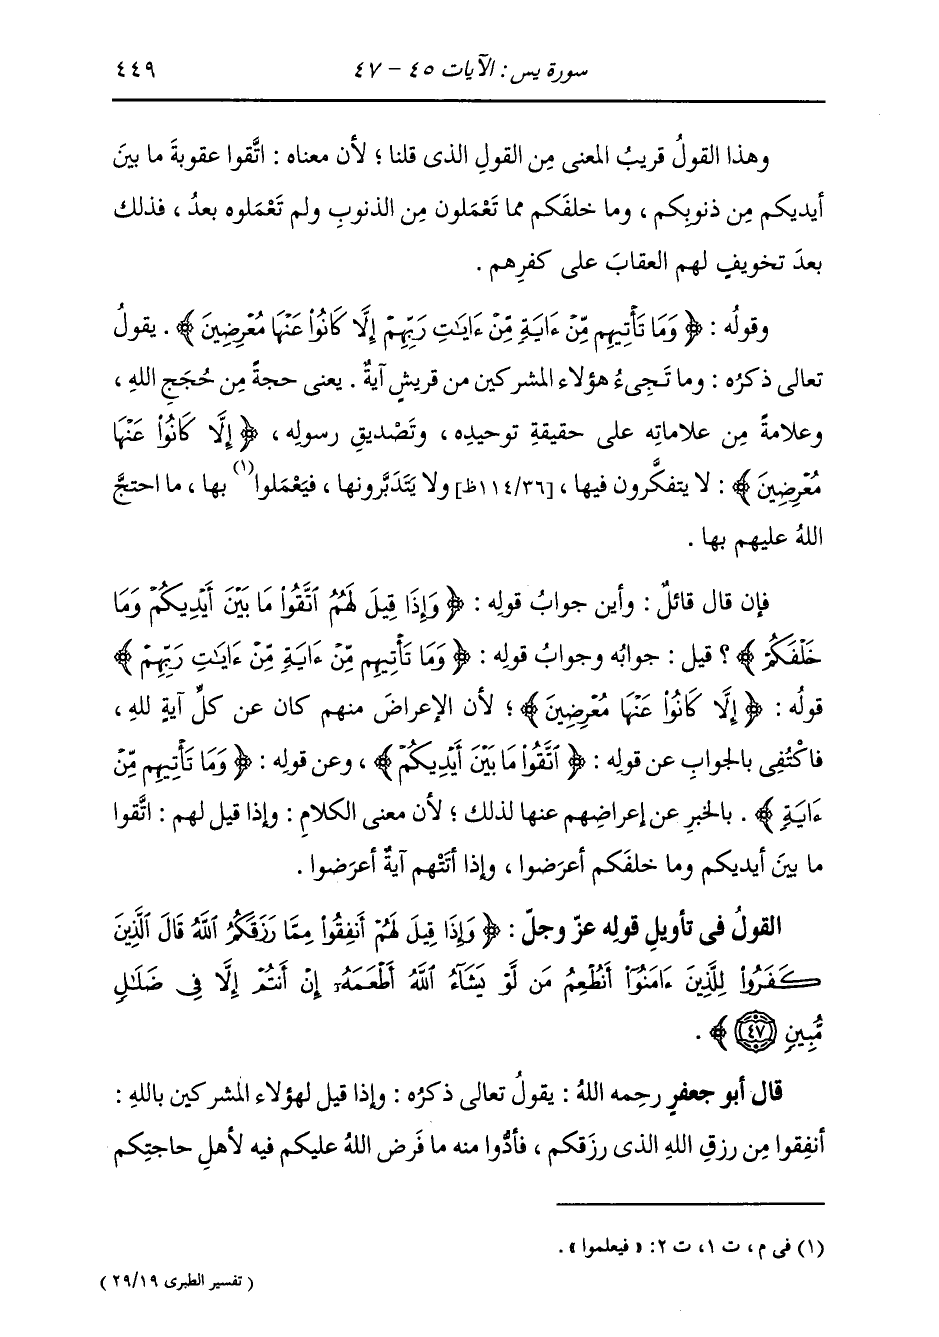 سورة يس : الآيات ٤٥ - ٤٧ ٤٤٩
وهذا القولُ قريبُ المعنى مِن القولِ الذى قلنا ؛ لأن معناه : اتَّقوا عقوبةَ ما بينَ
أيديكم مِن ذنوبِكم ، وما خلفَكم مما تَعْمَلون مِن الذنوبِ ولم تَعْمَلوه بعدُ ، فذلك
بعدَ تخويفٍ لهم العقابَ على كفرِهم .
وقولُه : ﴿ وَمَا تَأْتِيهِم مِّنْ ءَايَةٍ مِّنْ ءَايَٰتِ رَبِّهِمْ إِلَّا كَانُوا۟ عَنْهَا مُعْرِضِينَ ﴾ . يقولُ
تعالى ذكرُه : وما تَجىءُ هؤلاء المشركين من قريشٍ آيةٌ . يعنى حجةً مِن حُجَجِ اللهِ ،
وعلامةً مِن علاماتِه على حقيقةِ توحيدِه ، وتَصْديقِ رسولِه ، ﴿ إِلَّا كَانُوا۟ عَنْهَا
مُعْرِضِينَ ﴾ : لا يتفكَّرون فيها ، [١١٤/٣٦ظ] ولا يَتَدَبَّرونها ، فيَعْمَلوا(١) بها ، ما احتجَّ
اللهُ عليهم بها .
فإن قال قائلٌ : وأين جوابُ قولِه : ﴿ وَإِذَا قِيلَ لَهُمُ ٱتَّقُوا۟ مَا بَيْنَ أَيْدِيكُمْ وَمَا
خَلْفَكُمْ ﴾ ؟ قيل : جوابُه وجوابُ قولِه : ﴿ وَمَا تَأْتِيهِم مِّنْ ءَايَةٍ مِّنْ ءَايَٰتِ رَبِّهِمْ ﴾
قولُه : ﴿ إِلَّا كَانُوا۟ عَنْهَا مُعْرِضِينَ ﴾ ؛ لأن الإعراضَ منهم كان عن كلِّ آيةٍ للهِ ،
فاكْتُفِى بالجوابِ عن قولِه : ﴿ ٱتَّقُوا۟ مَا بَيْنَ أَيْدِيكُمْ ﴾ ، وعن قولِه : ﴿ وَمَا تَأْتِيهِم مِّنْ
ءَايَةٍ ﴾ . بالخبرِ عن إعراضِهم عنها لذلك ؛ لأن معنى الكلامِ : وإذا قيل لهم : اتَّقوا
ما بينَ أيديكم وما خلفَكم أعرَضوا ، وإذا أتَتْهم آيةٌ أعرَضوا .
القولُ فى تأويلِ قولِه عزّ وجلّ : ﴿ وَإِذَا قِيلَ لَهُمْ أَنفِقُوا۟ مِمَّا رَزَقَكُمُ ٱللَّهُ قَالَ ٱلَّذِينَ
كَفَرُوا۟ لِلَّذِينَ ءَامَنُوٓا۟ أَنُطْعِمُ مَن لَّوْ يَشَآءُ ٱللَّهُ أَطْعَمَهُۥٓ إِنْ أَنتُمْ إِلَّا فِى ضَلَٰلٍ
مُّبِينٍ ٤٧ ﴾ .
قال أبو جعفرٍ رحِمه اللهُ : يقولُ تعالى ذكرُه : وإذا قيل لهؤلاء المشركين باللهِ :
أنفِقوا مِن رزقِ اللهِ الذى رزَقكم ، فأدُّوا منه ما فرَض اللهُ عليكم فيه لأهلِ حاجتِكم
(١) فى م ، ت ١، ت ٢: « فيعلموا » .
( تفسير الطبرى ٢٩/١٩ )